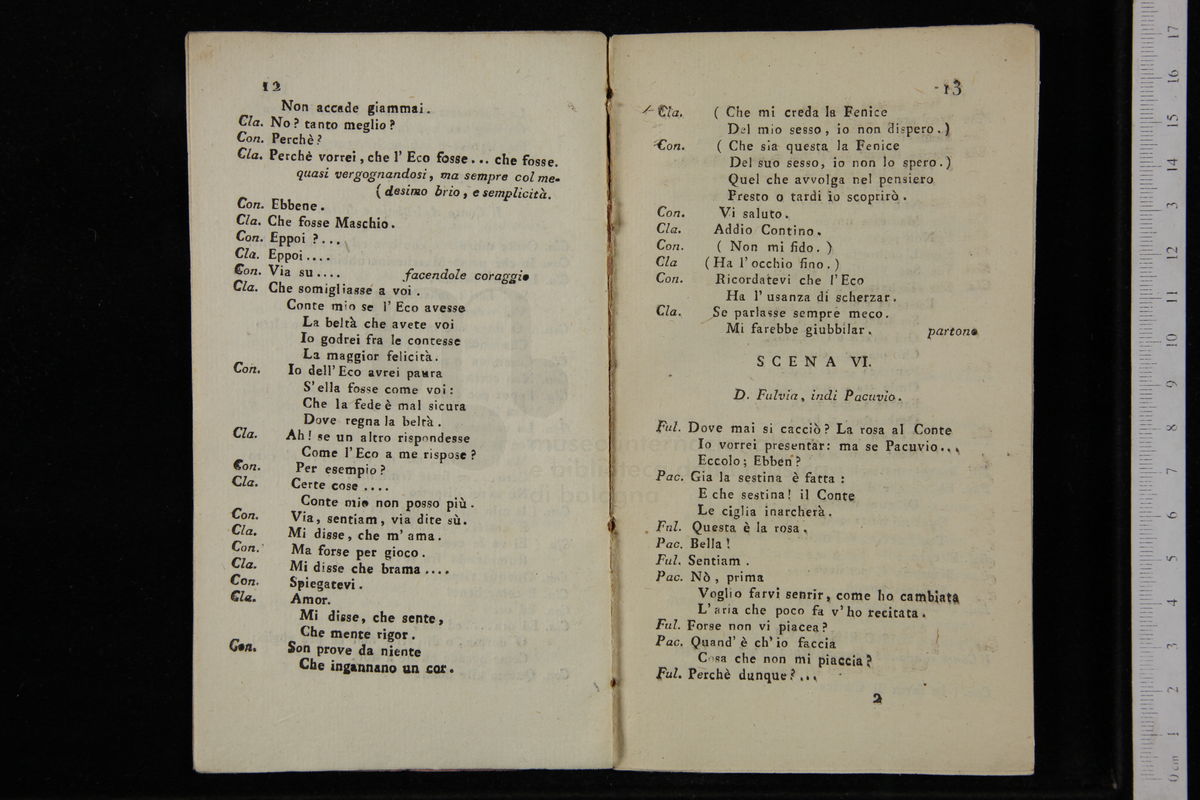 12
Non accade giammai.
Cla. No? tanto meglio?
Con. Perchè?
Cla. Perchè vorrei, che l' Eco fosse... che fosse.
quasi vergognandosi, ma sempre col me-
(desimo brio, e semplicità.
Con. Ebbene.
Cla. Che fosse Maschio.
Con. Eppoi ?...
Cla. Eppoi....
Con. Via su.... facendole coraggio
Cla. Che somigliasse a voi.
Conte mio se l' Eco avesse
La beltà che avete voi
Io godrei fra le contesse
La maggior felicità.
Con. Io dell' Eco avrei paura
S' ella fosse come voi:
Che la fede è mal sicura
Dove regna la beltà.
Cla. Ah! se un altro rispondesse
Come l' Eco a me rispose?
Con. Per esempio?
Cla. Certe cose ....
Conte mio non posso più.
Con. Via, sentiam, via dite sù.
Cla. Mi disse, che m' ama.
Con. Ma forse per gioco.
Cla. Mi disse che brama ....
Con. Spiegatevi.
Cla. Amor.
Mi disse, che sente,
Che mente rigor.
Con. Son prove da niente
Che ingannano un cor.
13
Cla. ( Che mi creda la Fenice
Del mio sesso, io non dispero.)
Con. ( Che sia questa la Fenice
Del suo sesso, io non lo spero.)
Quel che avvolga nel pensiero
Presto o tardi io scoprirò.
Con. Vi saluto.
Cla. Addio Contino.
Con. ( Non mi fido. )
Cla (Ha l' occhio fino.)
Con. Ricordatevi che l' Eco
Ha l' usanza di scherzar.
Cla. Se parlasse sempre meco.
Mi farebbe giubbilar. partono
SCENA VI.
D. Fulvia, indi Pacuvio.
Ful. Dove mai si cacciò? La rosa al Conte
Io vorrei presentar: ma se Pacuvio...
Eccolo; Ebben?
Pac. Gia la sestina è fatta :
E che sestina! il Conte
Le ciglia inarcherà.
Ful. Questa è la rosa.
Pac. Bella!
Ful. Sentiam.
Pac. Nò, prima
Voglio farvi senrir, come ho cambiata
L' aria che poco fa v' ho recitata.
Ful. Forse non vi piacea?
Pac. Quand' è ch' io faccia
Cosa che non mi piaccia?
Ful. Perchè dunque?...
2
museo internazionale
e biblioteca
di bologna
0cm 1 2 3 4 5 6 7 8 9 10 11 12 13 14 15 16 17